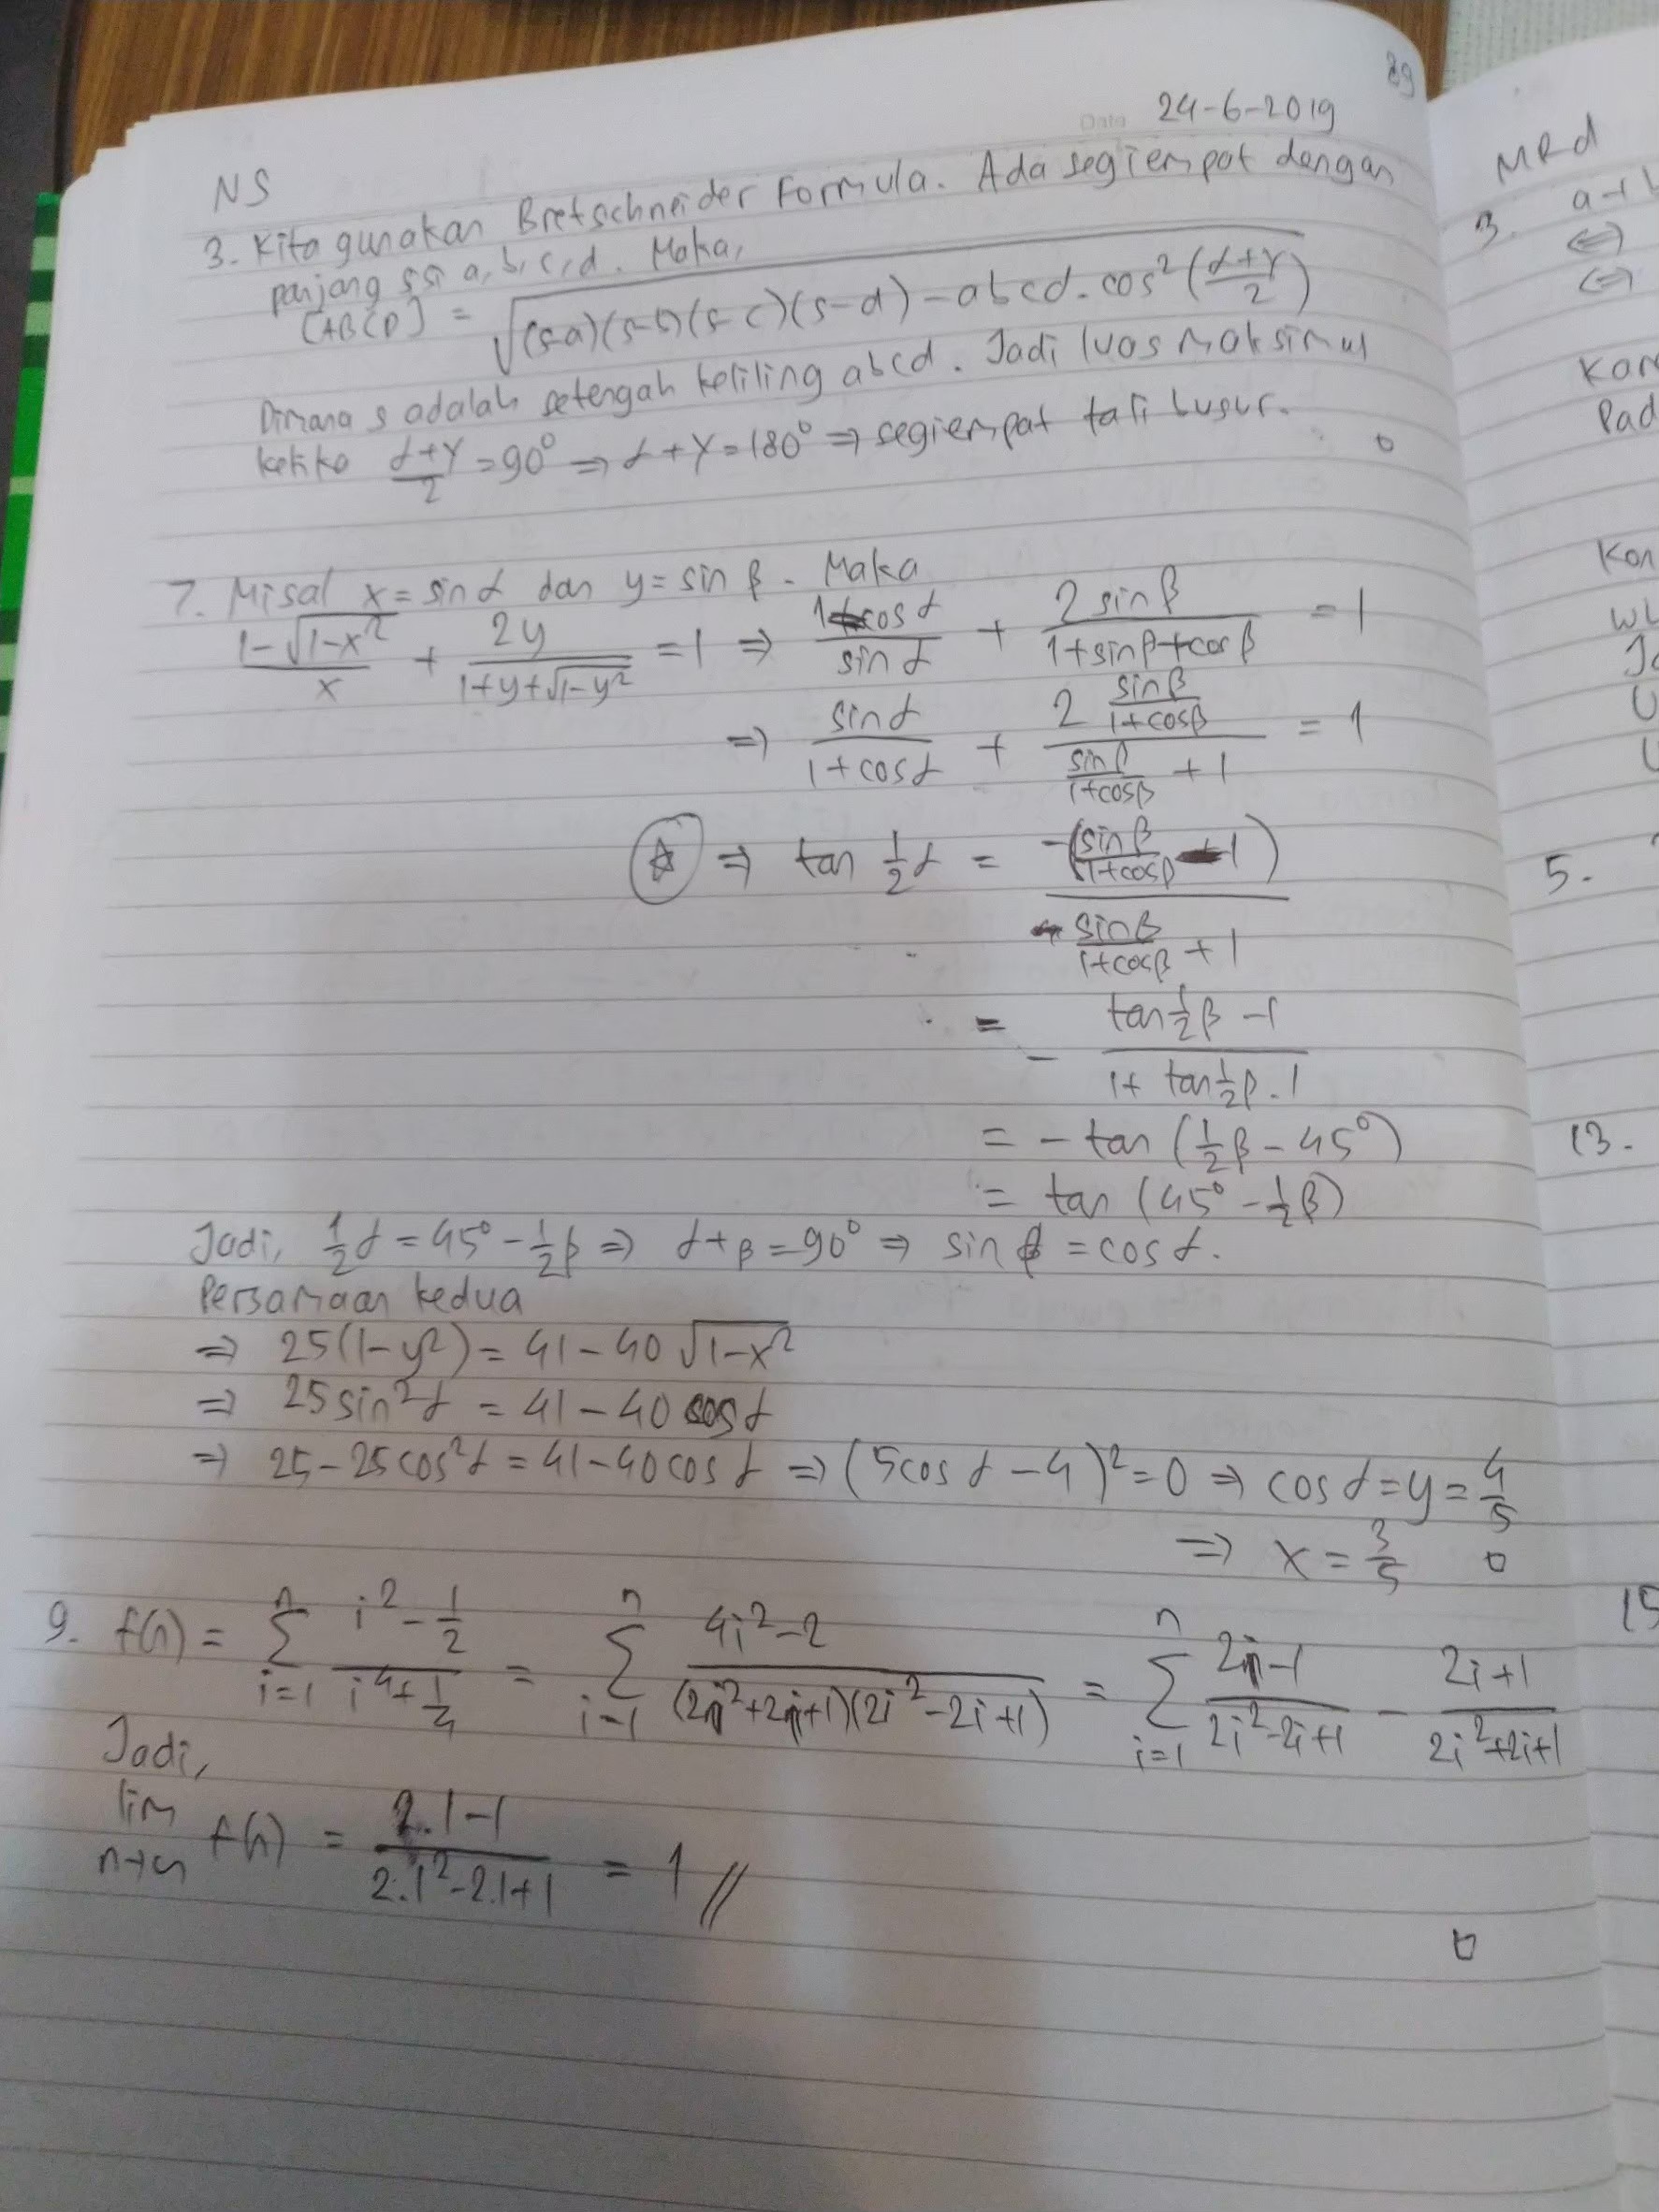 89
Date 24-6-2019
NS
3. Kita gunakan Bretschneider Formula. Ada segiempat dengan
panjang sisi a, b, c, d. Maka,
[ABCD] = √((s-a)(s-b)(s-c)(s-d) - abcd . cos²((α+γ)/2))
Dimana s adalah setengah keliling abcd. Jadi luas maksimul
ketika (α+γ)/2 = 90° ⇒ α+γ = 180° ⇒ segiempat tali busur.
7. Misal x = sin α dan y = sin β. Maka
(1-√(1-x²))/x + 2y/(1+y+√(1-y²)) = 1 ⇒ (1-cos α)/(sin α) + (2 sin β)/(1+sin β+cos β) = 1
⇒ (sin α)/(1+cos α) + (2 (sin β)/(1+cos β))/((sin β)/(1+cos β) + 1) = 1
☆ ⇒ tan ½α = -((sin β)/(1+cos β) - 1)/((sin β)/(1+cos β) + 1)
= - (tan ½β - 1)/(1 + tan ½β . 1)
= - tan (½β - 45°)
= tan (45° - ½β)
Jadi, ½α = 45° - ½β ⇒ α+β = 90° ⇒ sin β = cos α.
Persamaan kedua
⇒ 25(1-y²) = 41 - 40√(1-x²)
⇒ 25 sin²α = 41 - 40 cos α
⇒ 25 - 25cos²α = 41 - 40cos α ⇒ (5cos α - 4)² = 0 ⇒ cos α = y = 4/5
⇒ x = 3/5
9. f(n) = Σ_{i=1}^{n} (i² - 1/2)/(i⁴ + 1/4) = Σ_{i=1}^{n} (4i² - 2)/((2i²+2i+1)(2i²-2i+1)) = Σ_{i=1}^{n} (2i-1)/(2i²-2i+1) - (2i+1)/(2i²+2i+1)
Jadi,
lim n→∞ f(n) = (2.1-1)/(2.1²-2.1+1) = 1 //
MRd
3.
⇔
⇔
5.
13.
15